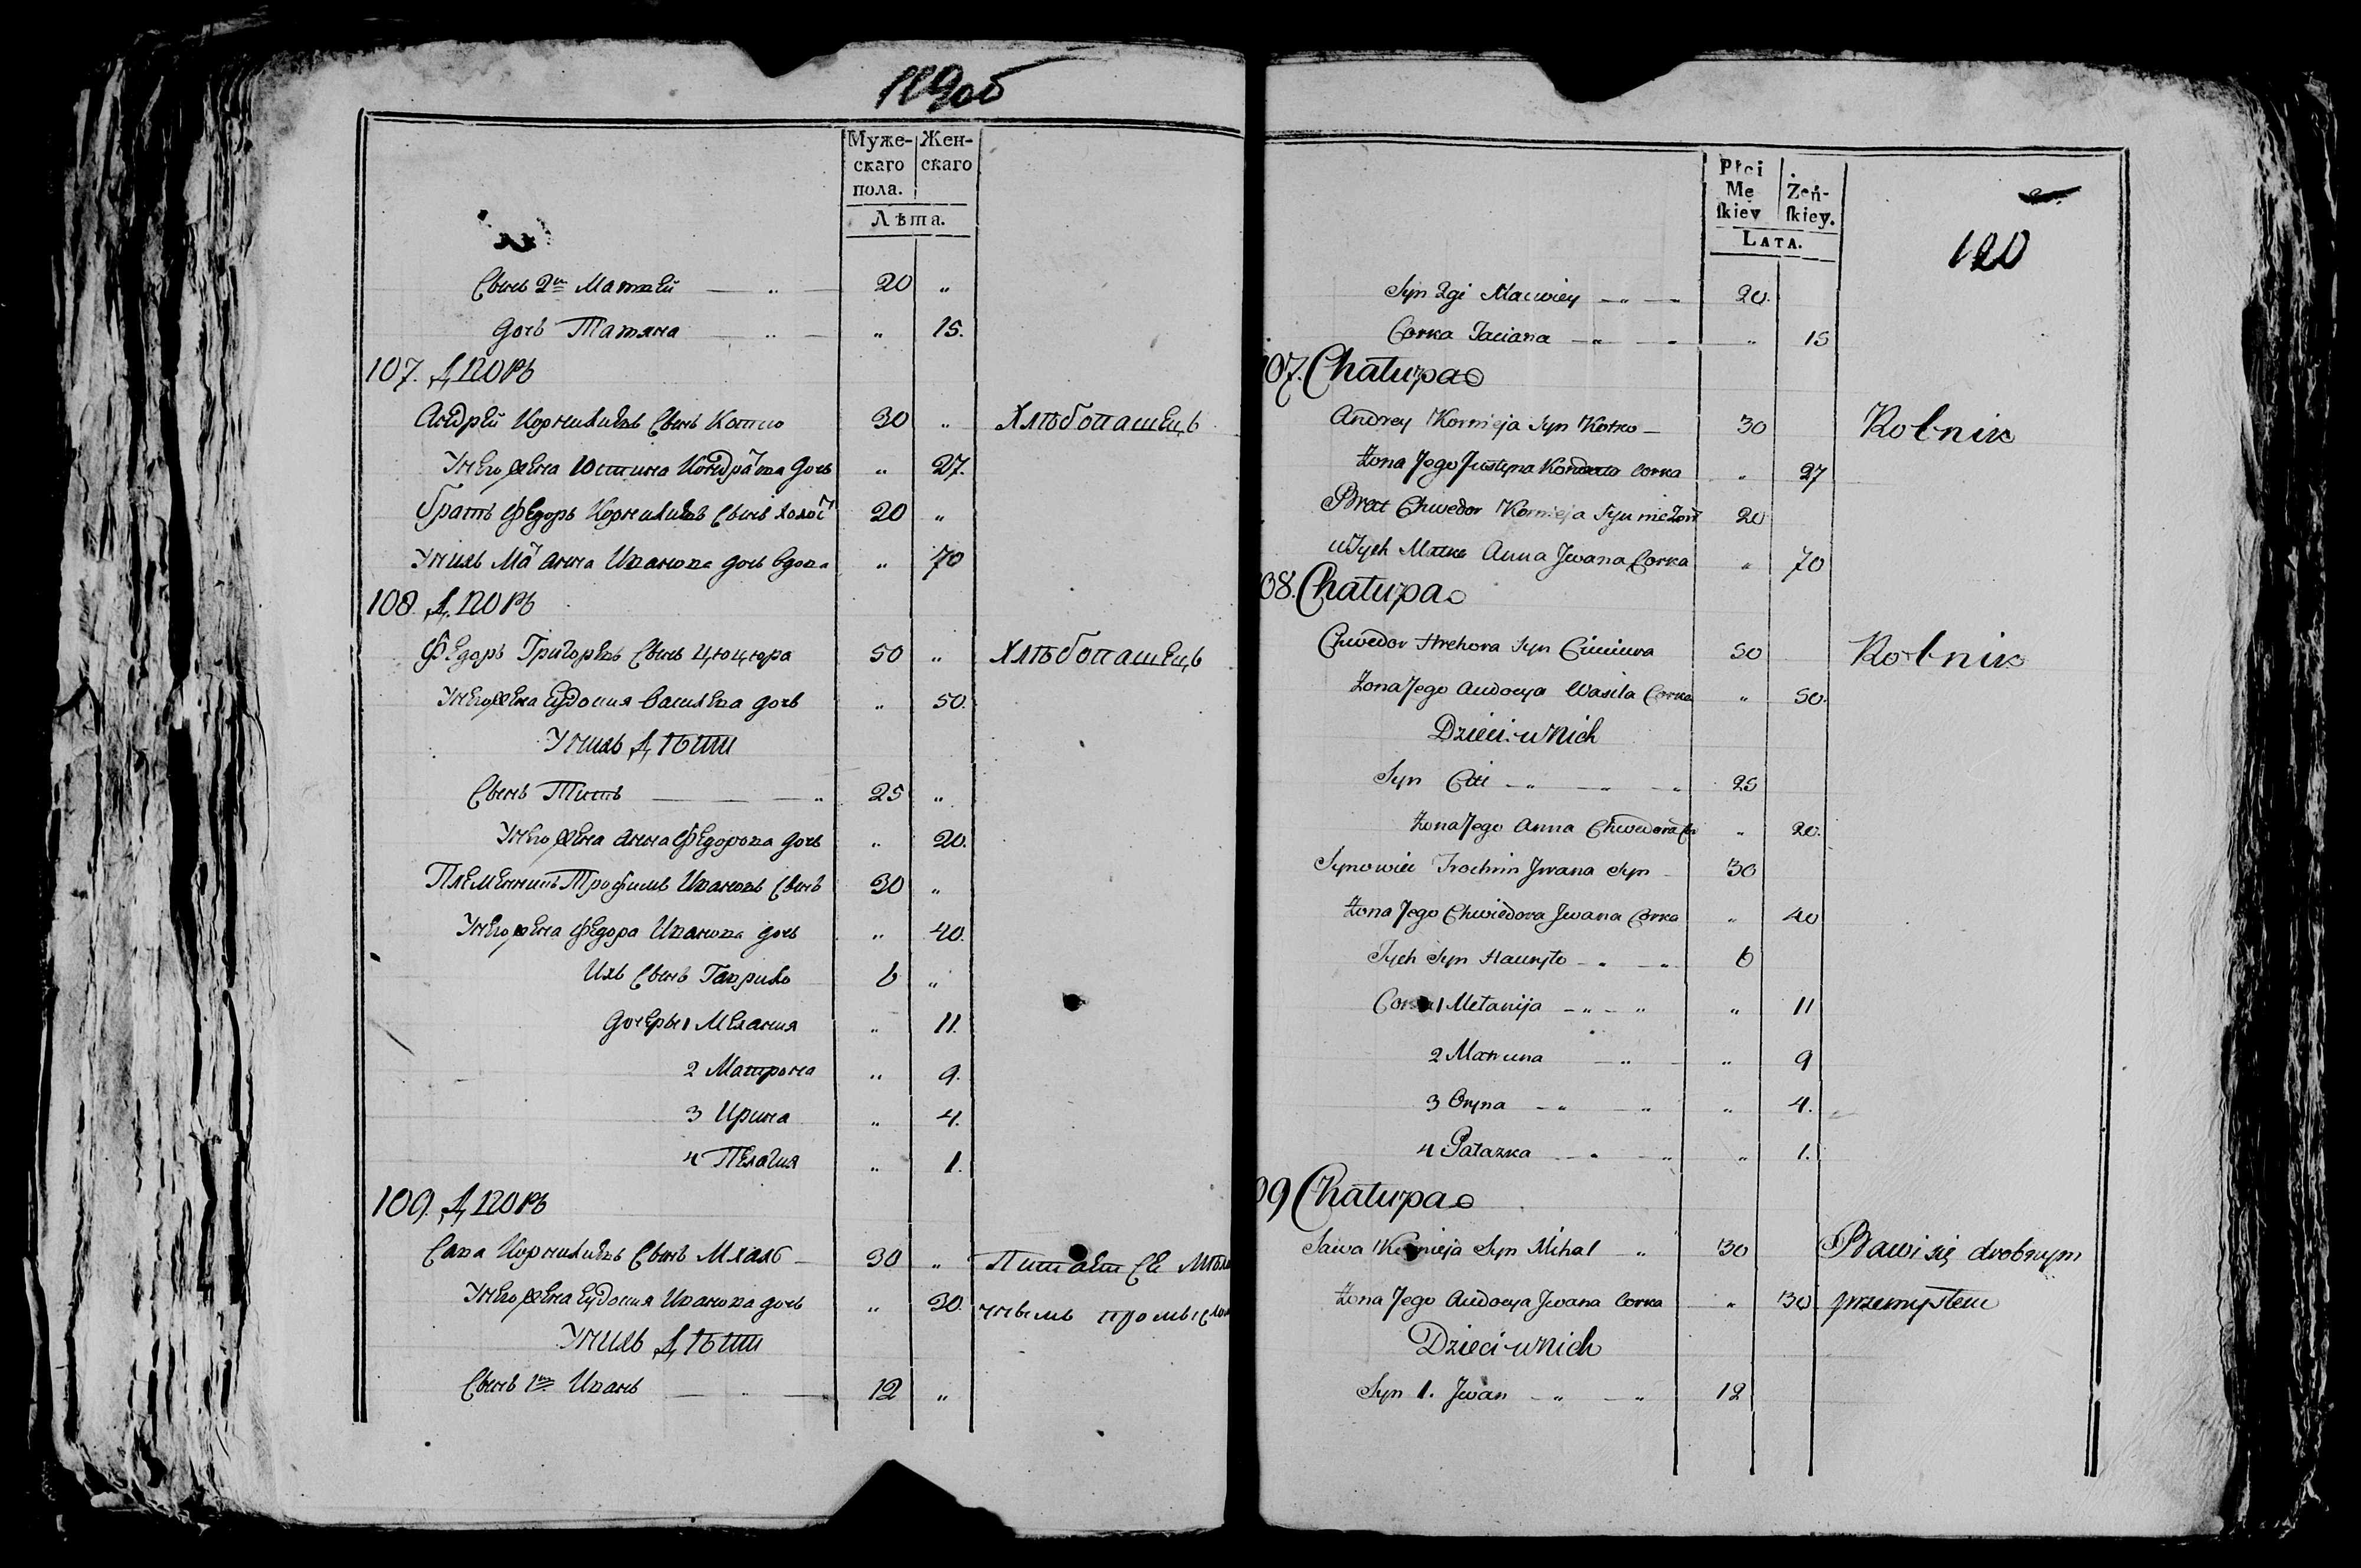 119об
Муже-
скаго
пола.
Жен-
скаго
Лѣта.
Сынъ 2й Матвей 20 "
дочь Татяна " 15.
107. Дворъ
Андрей Корниліевъ Сынъ Котко 30 " Хлѣбопашецъ
У него жена Юстина Кондратва дочь " 27.
братъ Федоръ Корниліевъ Сынъ холост 20 "
У нихъ Ма анна Иванова дочь вдова " 70
108. Дворъ
Федоръ Григорьевъ Сынъ Цюцюра 50 " Хлѣбопашецъ
У него жена Еудокия Василева дочь " 50.
У нихъ Дѣти
Сынъ Титъ 25 "
У него жена анна Федорова дочь " 20.
Племенникъ Трофимъ Ивановъ Сынъ 30 "
У него жена Федора Иванова дочь " 40.
Ихъ Сынъ Гаврило 6 "
дочеры 1 Мелания " 11.
2 Матрона " 9.
3 Ирина " 4.
4 Пелагия " 1.
109. Дворъ
Сава Корниліевъ Сынъ Михалъ 30 " Питает Се Мѣло
У него жена Еудокия Иванова дочь " 30. чнымъ промысло
У нихъ Дѣти
Сынъ 1й Иванъ 12 "
Płci
Mę
ſkiey
Żeń-
ſkiey.
LATA.
120
Syn 2gi Maciwiey 20.
Corka Taciana " 15
107. Chałupa
Andrey Kornieja Syn Kotko 30 Rolnik
Żona Jego Justyna Kondrata Corka " 27
Brat Chwedor Kornieja Syn nieżon 20
u Tych Matka Anna Jwana Corka " 70
08. Chałupa
Chwedor Hrehora Syn Ciuciura 50 Rolnik
Żona Jego Audocya Wasila Corka " 50.
Dzieci u Nich
Syn Cit 25
Żona Jego Anna Chwedora Cor " 20.
Synowiec Trochim Jwana Syn 30
Żona Jego Chwiedora Jwana Corka " 40
Tych Syn Hauryło 6
Corka 1 Mełanija " 11
2 Matruna " 9
3 Oryna " 4.
4 Pałazka " 1.
09 Chałupa
Sawa Kornieja Syn Mihal 30 Bawi się drobnym
Żona Jego Audocya Jwana Corka " 30 przemysłem
Dzieci u Nich
Syn 1. Jwan 12